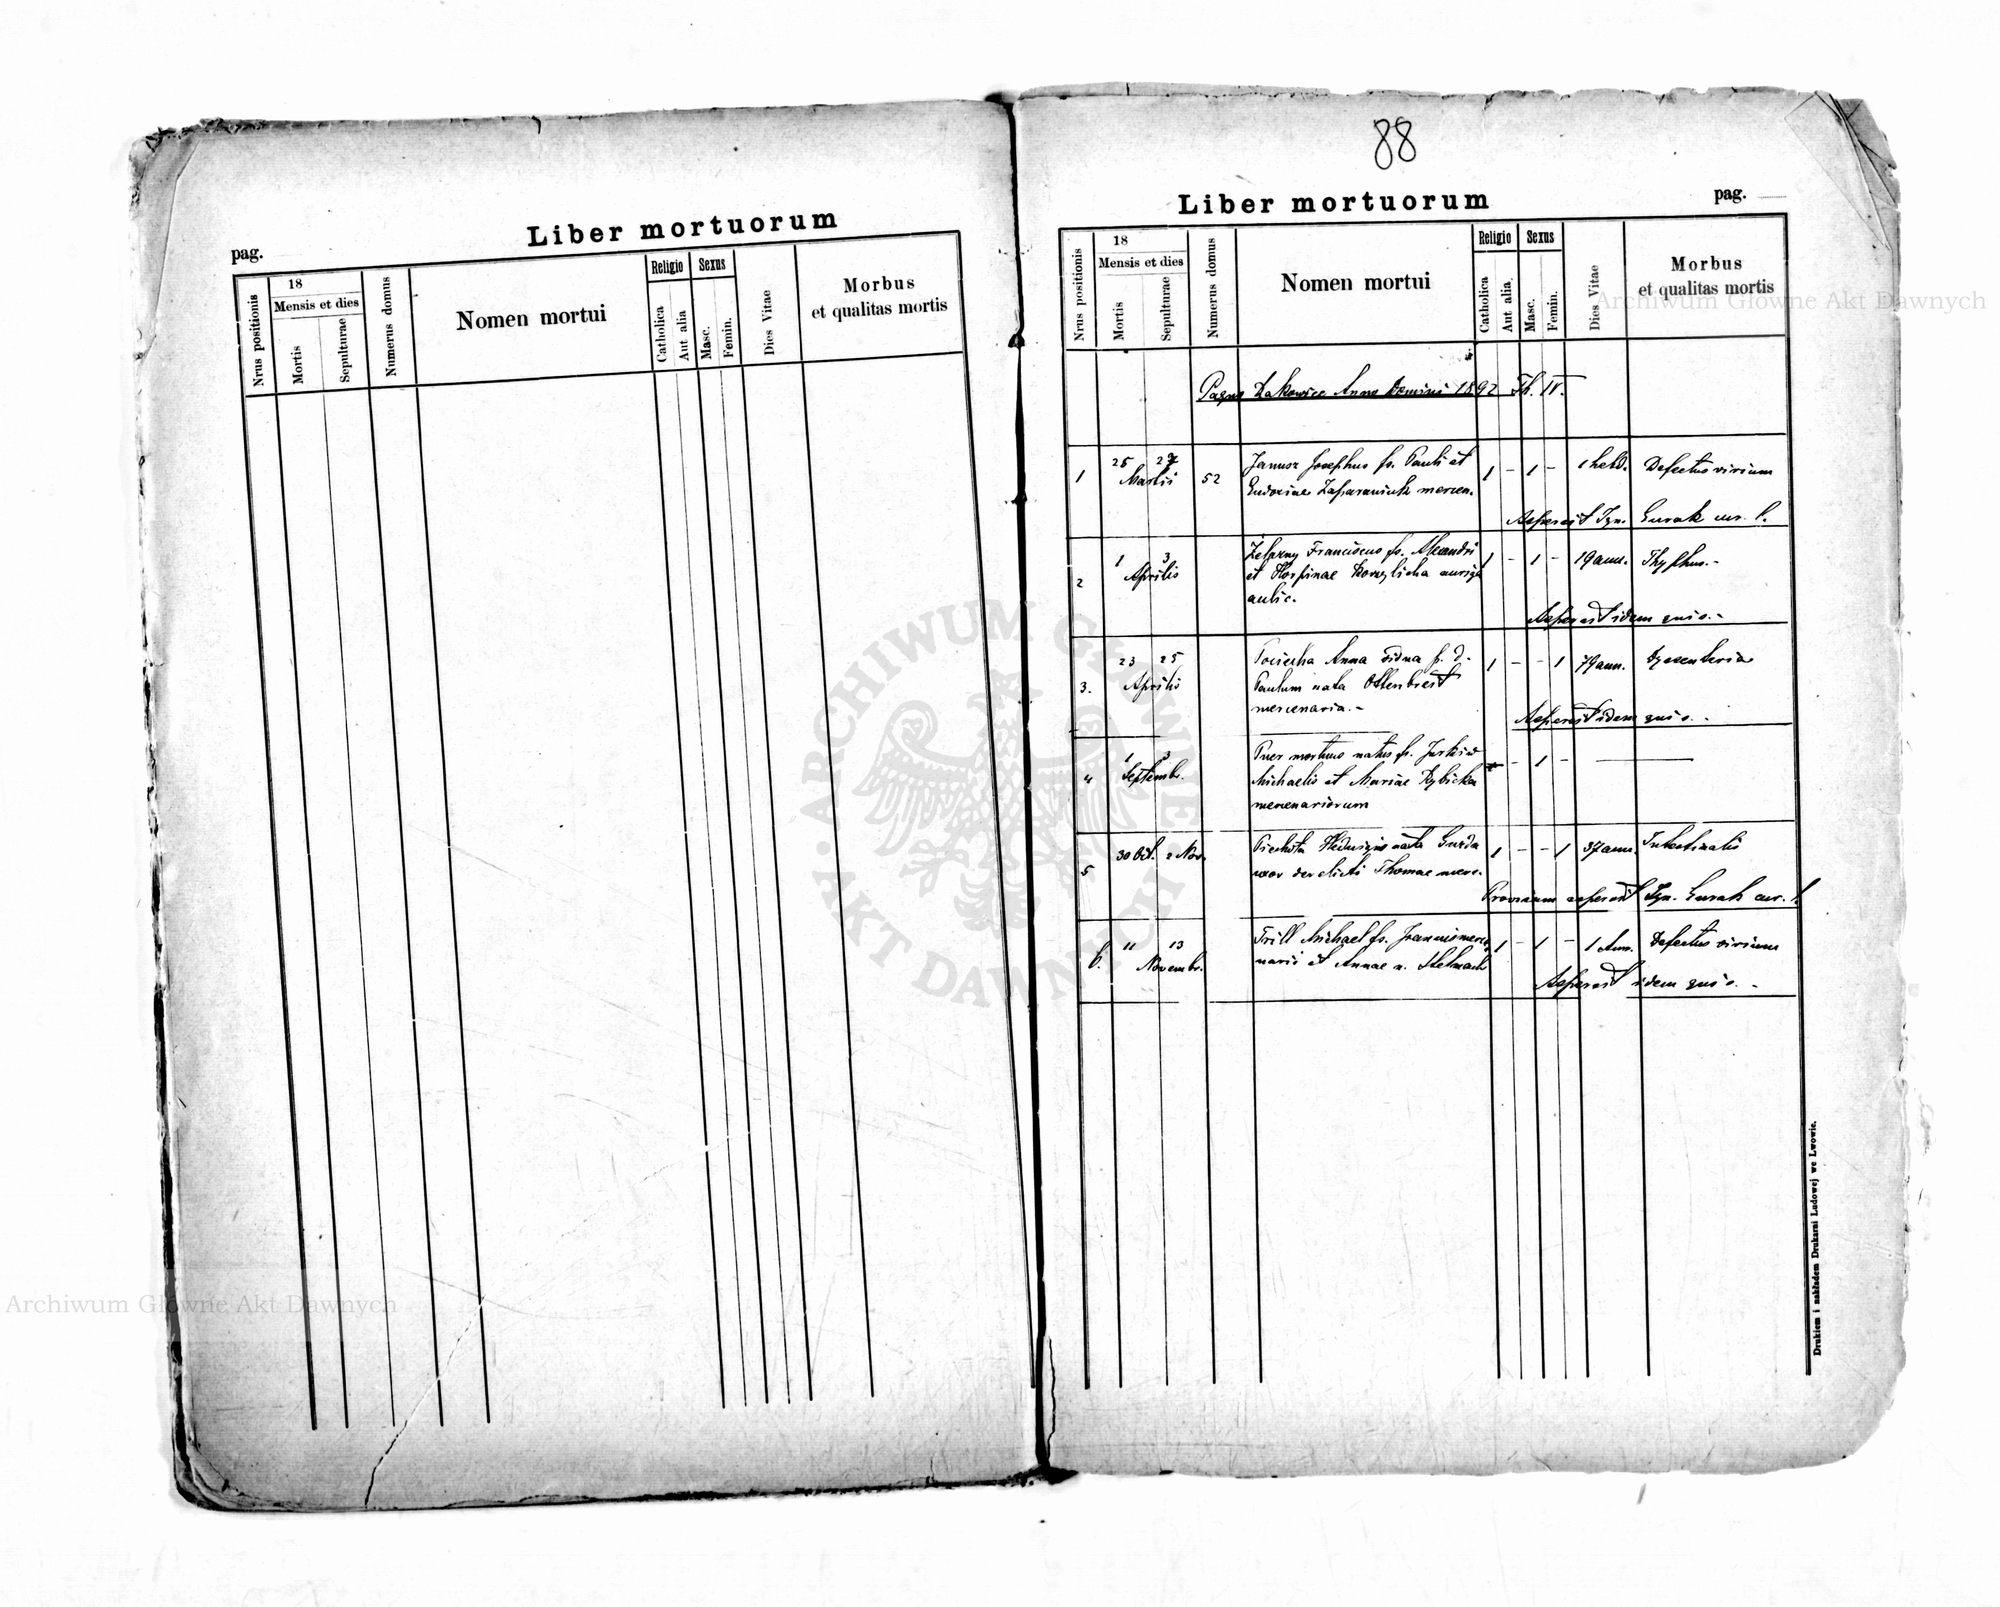 Liber mortuorum
pag.
Nrus positionis
18
Mensis et dies
Mortis
Sepulturae
Numerus domus
Nomen mortui
Religio
Catholica
Aut alia
Sexus
Masc.
Femin.
Dies Vitae
Morbus
et qualitas mortis
88
Liber mortuorum
pag.
Nrus positionis
18
Mensis et dies
Mortis
Sepulturae
Numerus domus
Nomen mortui
Religio
Catholica
Aut alia.
Sexus
Masc.
Femin.
Dies Vitae
Morbus
et qualitas mortis
Anno Domini 1892 Th. IV.
1 25 27 Martii 52 Janusz Josephus fs. Pauli et 1 - 1 - 1 hebd. Defectus virium
mercen.
Aspersit Ign. Gurak cur. l.
2 1 3 Aprilis Franciscus fs. Alexandri 1 - 1 - 19 ann. Thyphus.-
et
aulic.
Aspersit idem qui s.-
3. 23 25 Aprilis Pociecha Anna vidua p. d. 1 - - 1 79 ann. Dysenteria
Paulum nata Ottenbreit
mercenaria.-
Aspersit idem qui s. -
4 1 3 Septembr. Puer mortuus natus fs. - 1 -
Michaelis et Mariae Rybicka
mercenariorum
5 30 Oct. 2 Nov. Piechota Hedwigis nata 1 - - 1 37 ann. Intestinalis
uxor derelicti Thomae merc.
Provisam aspersit Ign. Gurak cur. l.
6. 11 13 Novembr. Trill Michael fs. Joannis merce- 1 - 1 - 1 Ann. Defectus virium
narii et Annae n. Stelmach
Aspersit idem qui s. -
Drukiem i nakładem Drukarni Ludowej we Lwowie.
Archiwum Główne Akt Dawnych
ARCHIWUM GŁÓWNE
AKT DAWNYCH
Archiwum Główne Akt Dawnych